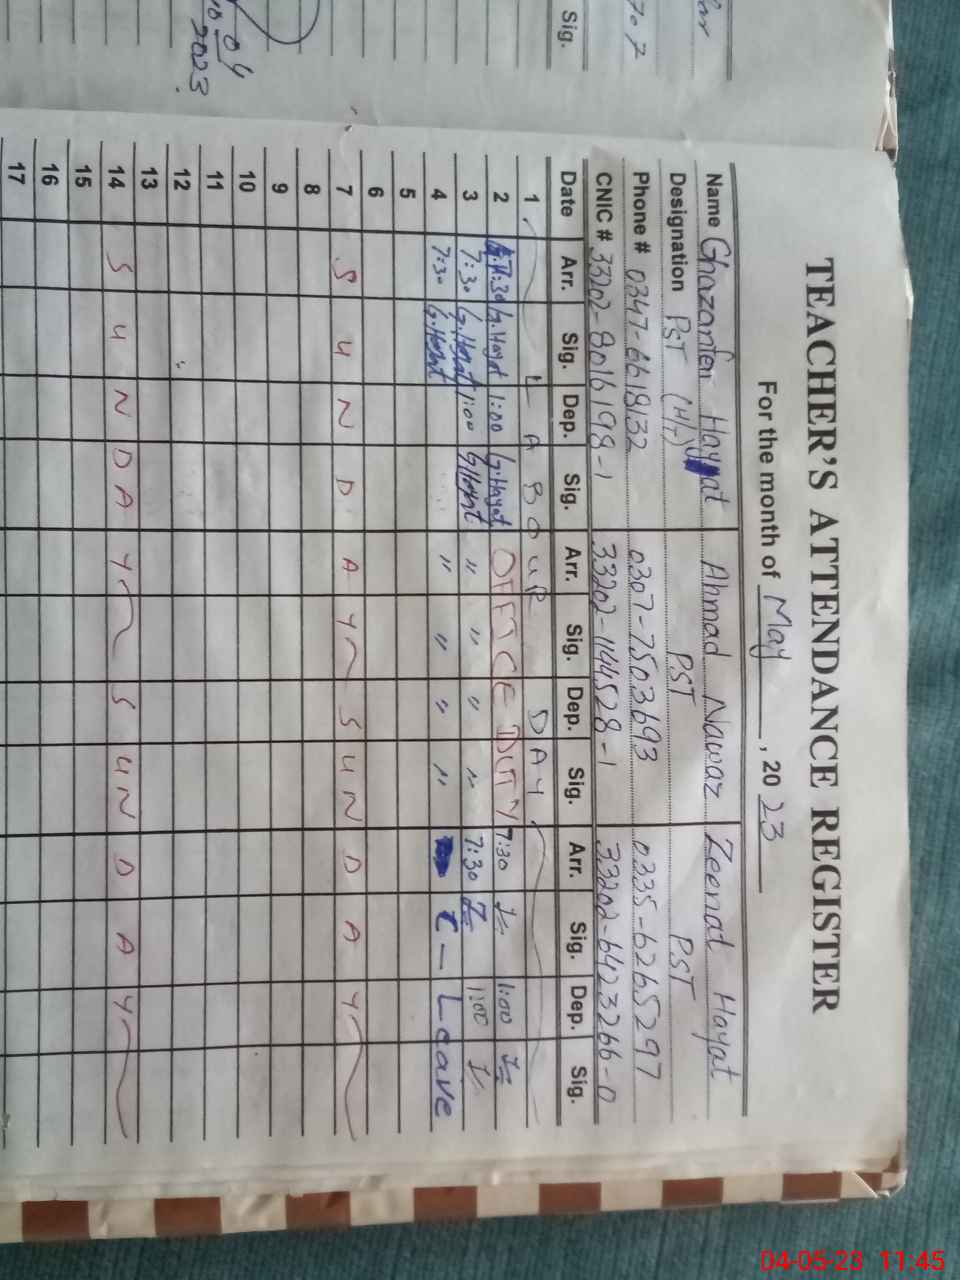 TEACHER'S ATTENDANCE REGISTER
For the month of May, 2023
Name Ghazanfer Hayat Ahmad Nawaz Zeenat Hayat
Designation PST (H/T) PST PST
Phone # 0347-6618132 0307-7503693 0335-6265297
CNIC # 33202-8016198-1 33202-1144528-1 33202-6423266-0
Date Arr. Sig. Dep. Sig. Arr. Sig. Dep. Sig. Arr. Sig. Dep. Sig.
1 LABOUR DAY
2 7:30 G.Hayat 1:00 G.Hayat OFFICE DUTY 7:30 1:00
3 7:30 G.Hayat 1:00 G.Hayat " " " " 7:30 1:00
4 7:30 G.Hayat " " " " C-Leave
5
6
7 SUNDAY SUNDAY
8
9
10
11
12
13
14 SUNDAY SUNDAY
15
16
17
Sig.
04
2023
04-05-23 11:45